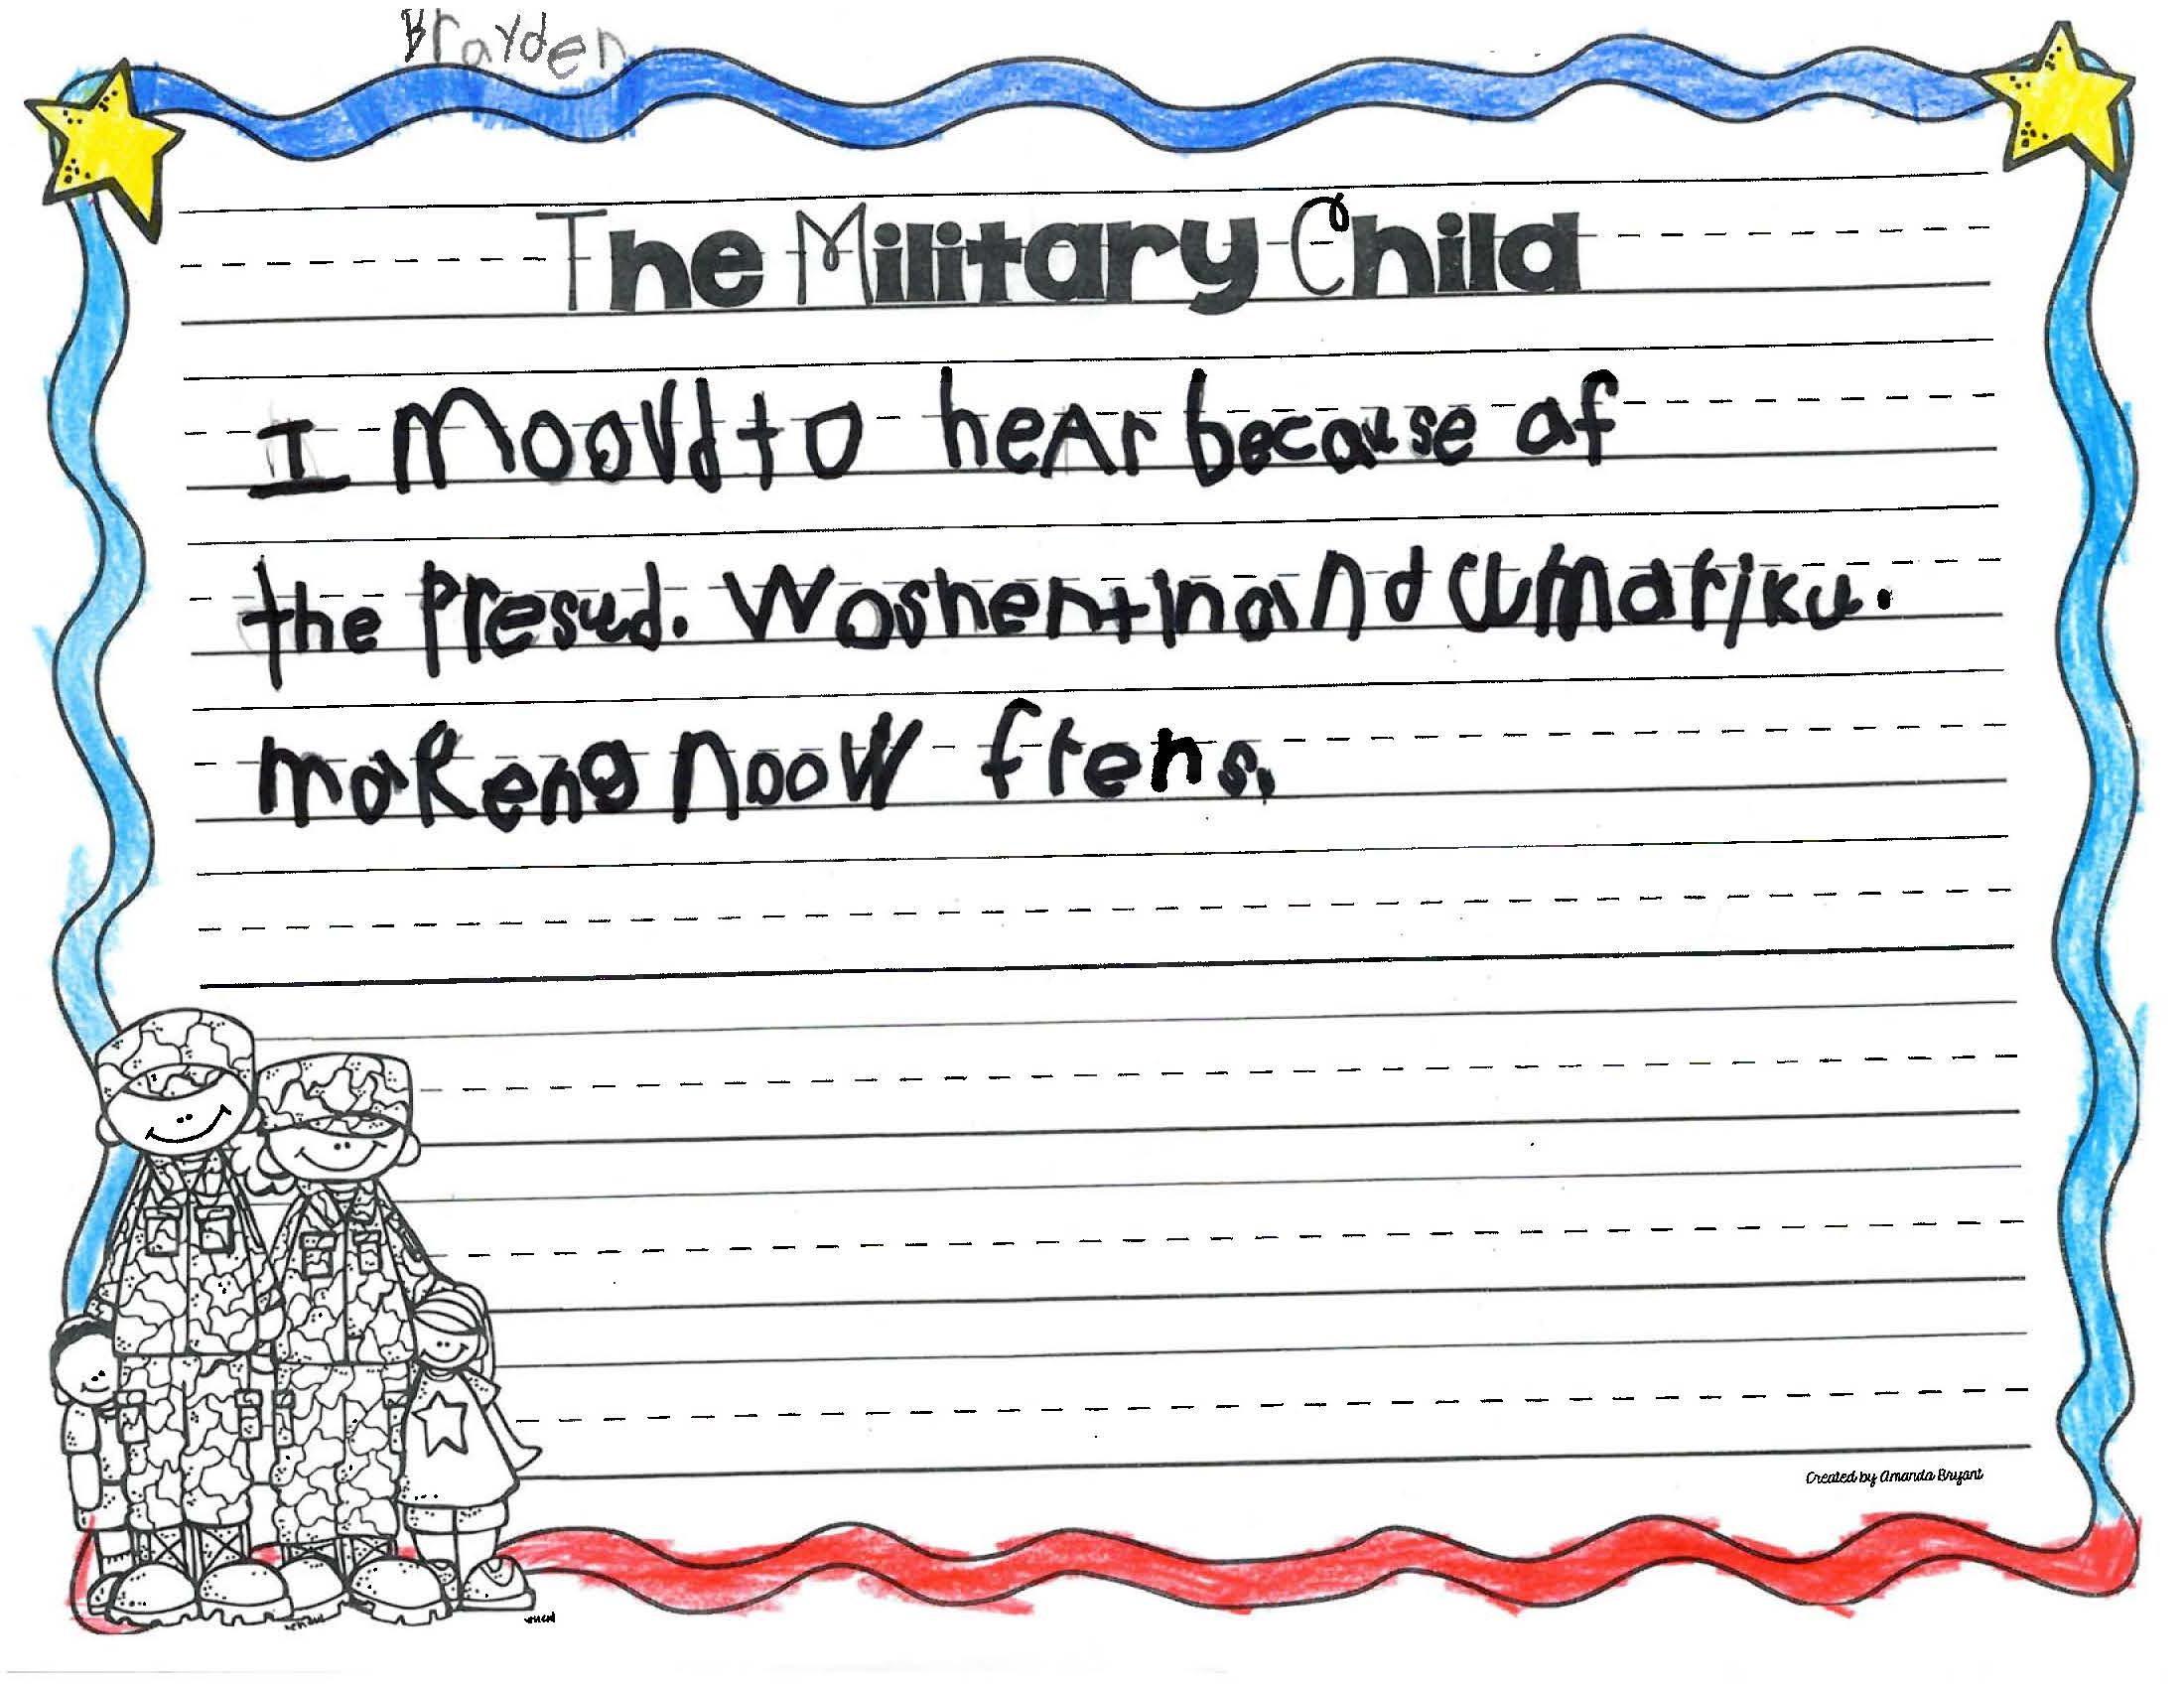 Brayden
The Military Child
I moovd to heAr because af
the Presud. Woshentin and cumariku.
makeng noow frens.
Created by Amanda Bryant